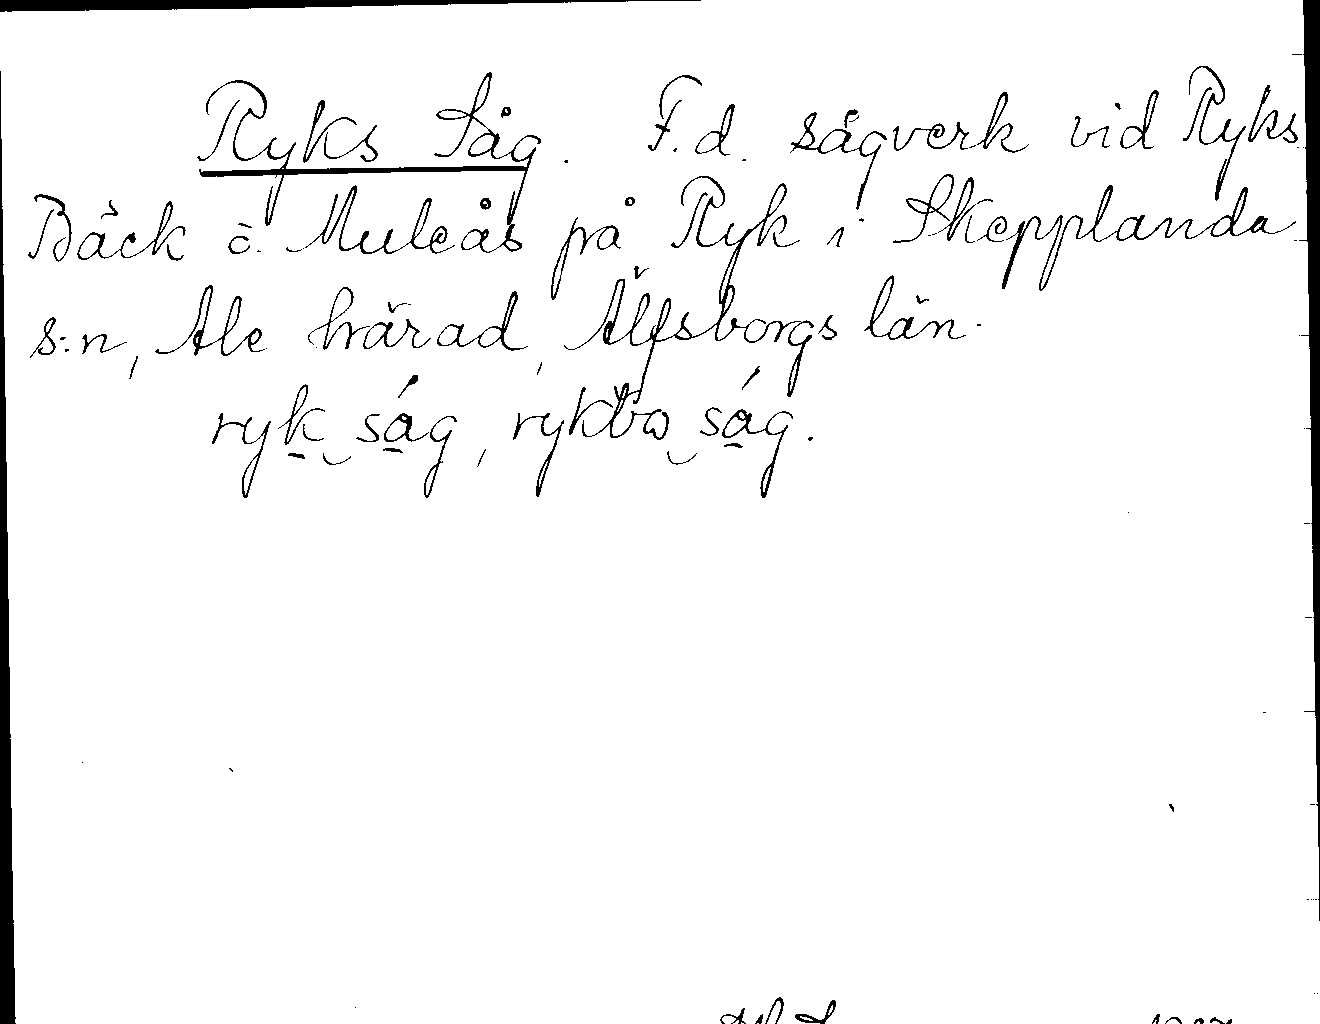 Ryks Såg. F.d. sågverk vid Ryks
Bäck ö. Muleås på Ryk i Skepplanda
s:n, Ale härad, Älfsborgs län.
ryk ság, ság.